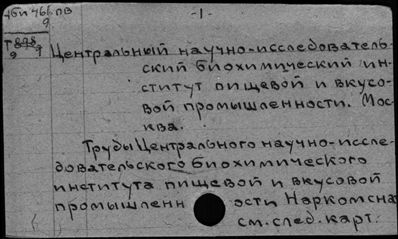 -1-
9
9 7
Центральный научно-исследователь-
ский биохимический ин-
ститут пищевой и вкусо-
вой промышленности. Мос-
ква.
Труды Центрального научно-иссле-
довательского биохимического
института пищевой и вкусовой
промышленн ости Наркомсна
см. след. карт.